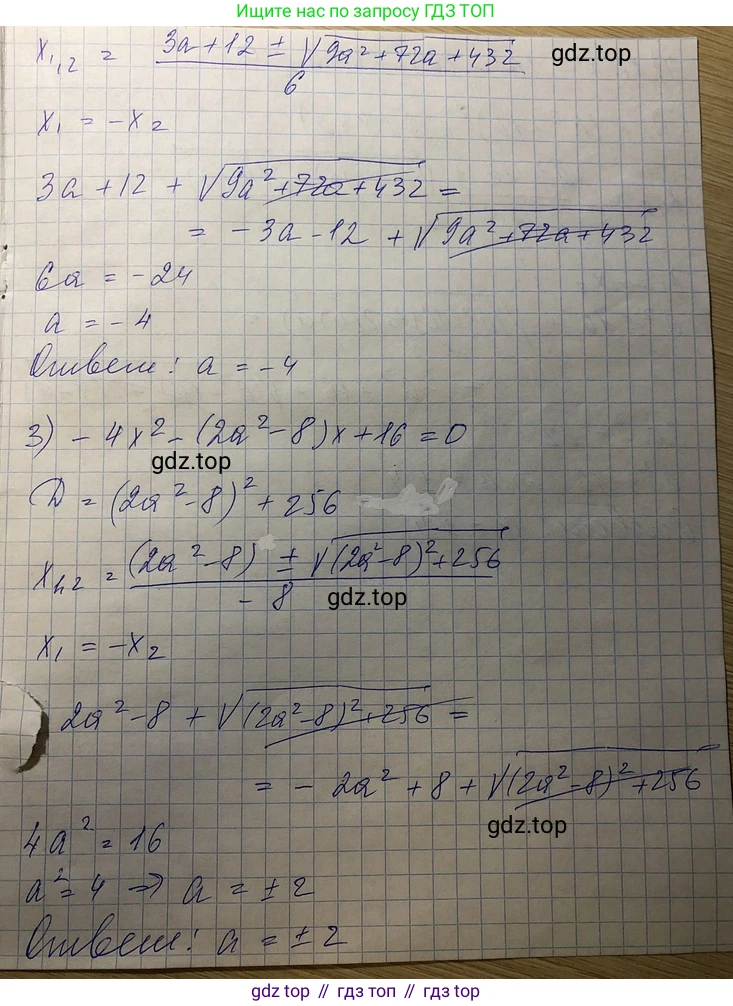 Ищите нас по запросу ГДЗ ТОП
x₁,₂ = (3a + 12 ± √(9a² + 72a + 432)) / 6
gdz.top
x₁ = -x₂
3a + 12 + √(9a² + 72a + 432) =
= -3a - 12 + √(9a² + 72a + 432)
6a = -24
a = -4
Ответ: a = -4
3) -4x² - (2a² - 8)x + 16 = 0
gdz.top
D = (2a² - 8)² + 256
x₁,₂ = ((2a² - 8) ± √((2a² - 8)² + 256)) / -8
gdz.top
x₁ = -x₂
2a² - 8 + √((2a² - 8)² + 256) =
= -2a² + 8 + √((2a² - 8)² + 256)
gdz.top
4a² = 16
a² = 4 => a = ±2
Ответ: a = ±2
gdz top // гдз топ // gdz.top